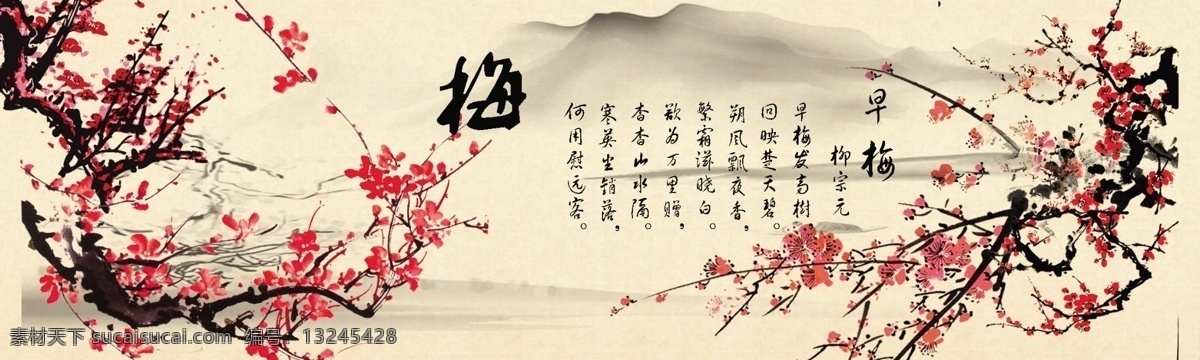 早梅
柳宗元
早梅发高樹
回映楚天碧。
朔风飘夜香，
繁霜滋晓白。
欲为万里赠，
杳杳山水隔。
寒英坐销落，
何用慰远客。
梅
素材天下 sucaisucai.com 编号：13245428